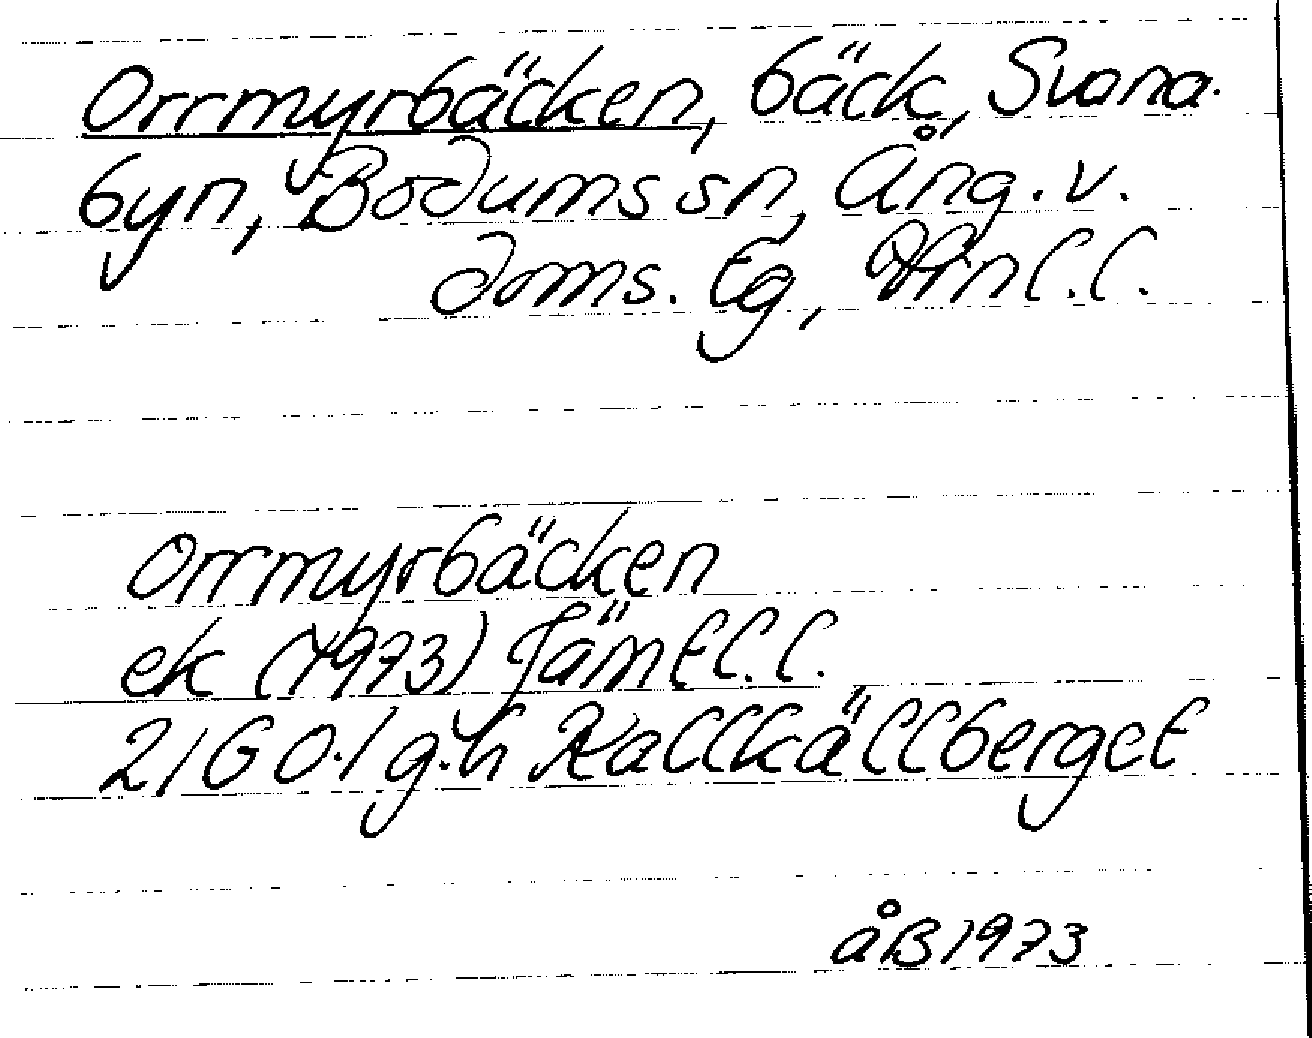 Orrmyrbäcken, bäck, Svana-
byn, Bodums sn, Ång. v.
doms. tg, Vrnl.l.
Orrmyrbäcken
ek (1973) Jämtl.l.
21G0.1 g.h Kallkällberget
åB 1973